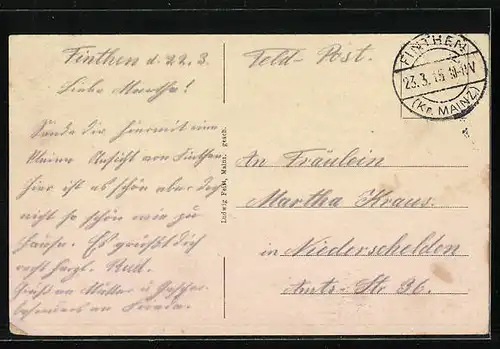 Finthen d. 22. 3.
Liebe Martha!
Sende dir hiermit eine
kleine Ansicht von Finthen
hier ist es schön aber doch
nicht so schön wie zu
Hause. Es grüßt dich
recht herzl. Rud.
Gruß an Mutter u.
besonders an Frieda.
Ludwig Falk, Mainz. gesch.
Feld-Post.
FINTHEN
23.3.15
(Kr. MAINZ)
An Fräulein
Martha Kraus.
in Niederschelden
Amts-Str 36.